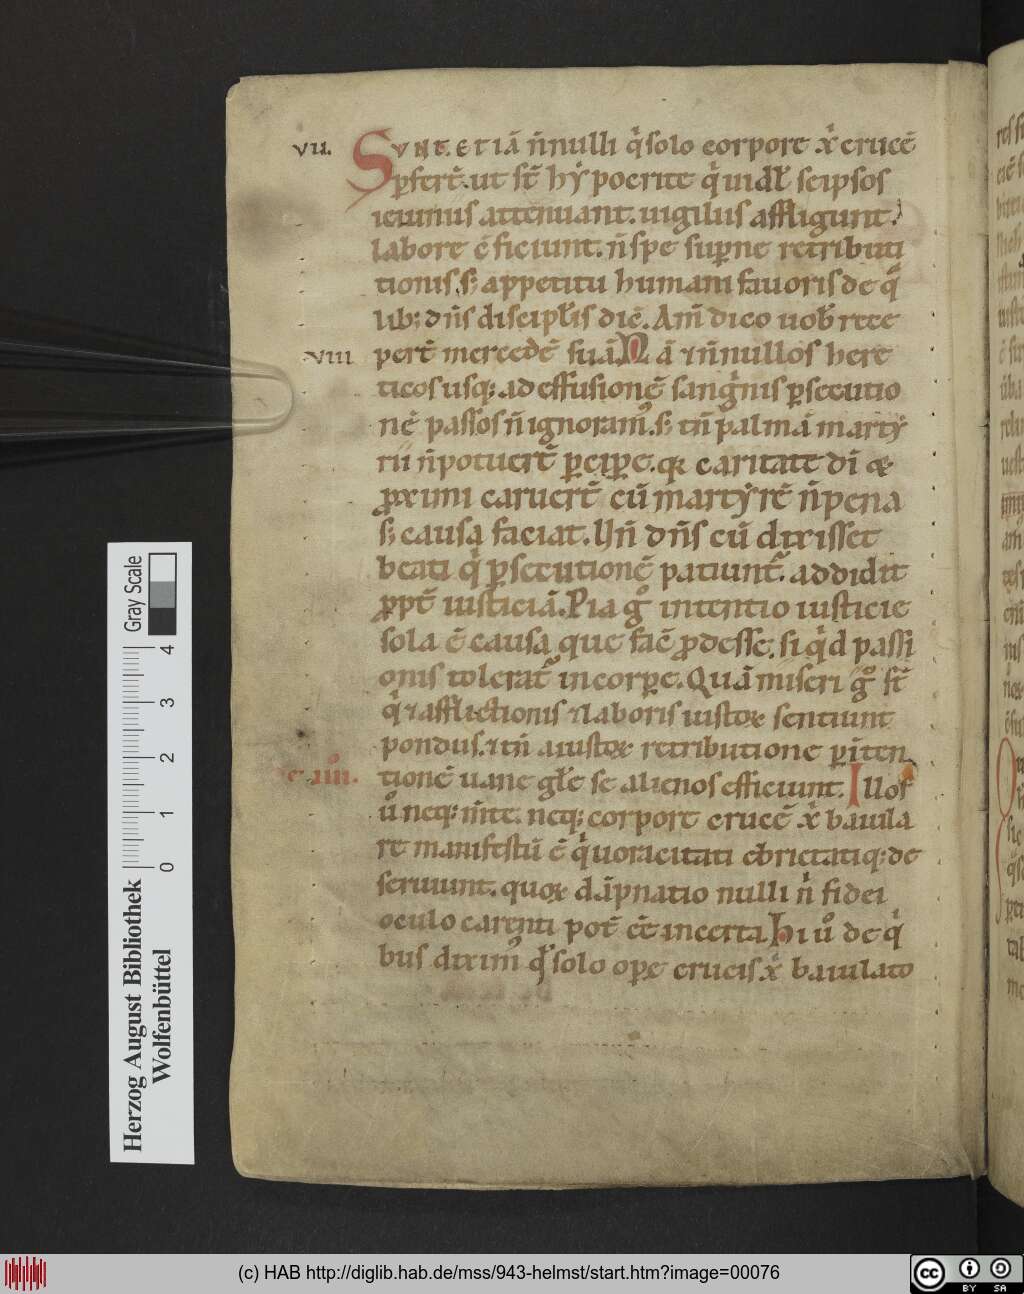 vii. Sunt etiā n̄nulli q̇ solo corpore x̄ crucē
p̱fert̄. ut st̄ hẏpocrite q̇ uidl̄ seipsos
ieiuniis attenuant. uigiliis affligunt.
labore c̄ficiunt. n̄ spe sup̱ne retributi
tionis. s; appetitu humani fauoris de q̊
lib; dn̄s discipl̄is dic̄. Am̄ dico uob̄ rece
viii pert̄ mercedē suā. Nā ⁊ n̄nullos here
ticos usq; ad effusionē sang̍nis p̱secutio
nē passos n̄ ignoram᷒. s; tn̄ palmā martẏ
rii n̄ potuert̄ p̱cip̱e. qꝛ caritate dī &
ꝓximi caruert̄ cū martẏrē n̄ pena
s; causa faciat. Hn̄ dn̄s cū dixisset
beati q̇ p̱secutionē patiunt̄. addidit
ꝓpt̄ iusticiā. Pia g̊ intentio iusticie
sola ē causa que fac̄ ꝓdesse. si q̇d passi
onis tolerat̄ in corp̱e. Quā miseri g̊ st̄
q̇ ⁊ afflictionis ⁊ laboris iustoꝝ sentiunt
pondus. ⁊ tn̄ a iustoꝝ retributione p̱ inten
c. iiii. tionē uane gl̄e se alienos efficiunt. Illos
ů neq; m̄te. neq; corpore crucē x̄ baiula
re manifestū ē q̇ uoracitati ebrietatiq; de
seruiunt. quoꝝ dāpnatio nulli n̄ fidei
oculo carenti pot̄ ēe incerta. Hi ů de q̇
bus dixim᷒ qd̄ solo op̱e crucis x̄ baiulato
Gray Scale
0 1 2 3 4
Herzog August Bibliothek
Wolfenbüttel
(c) HAB http://diglib.hab.de/mss/943-helmst/start.htm?image=00076
cc BY SA